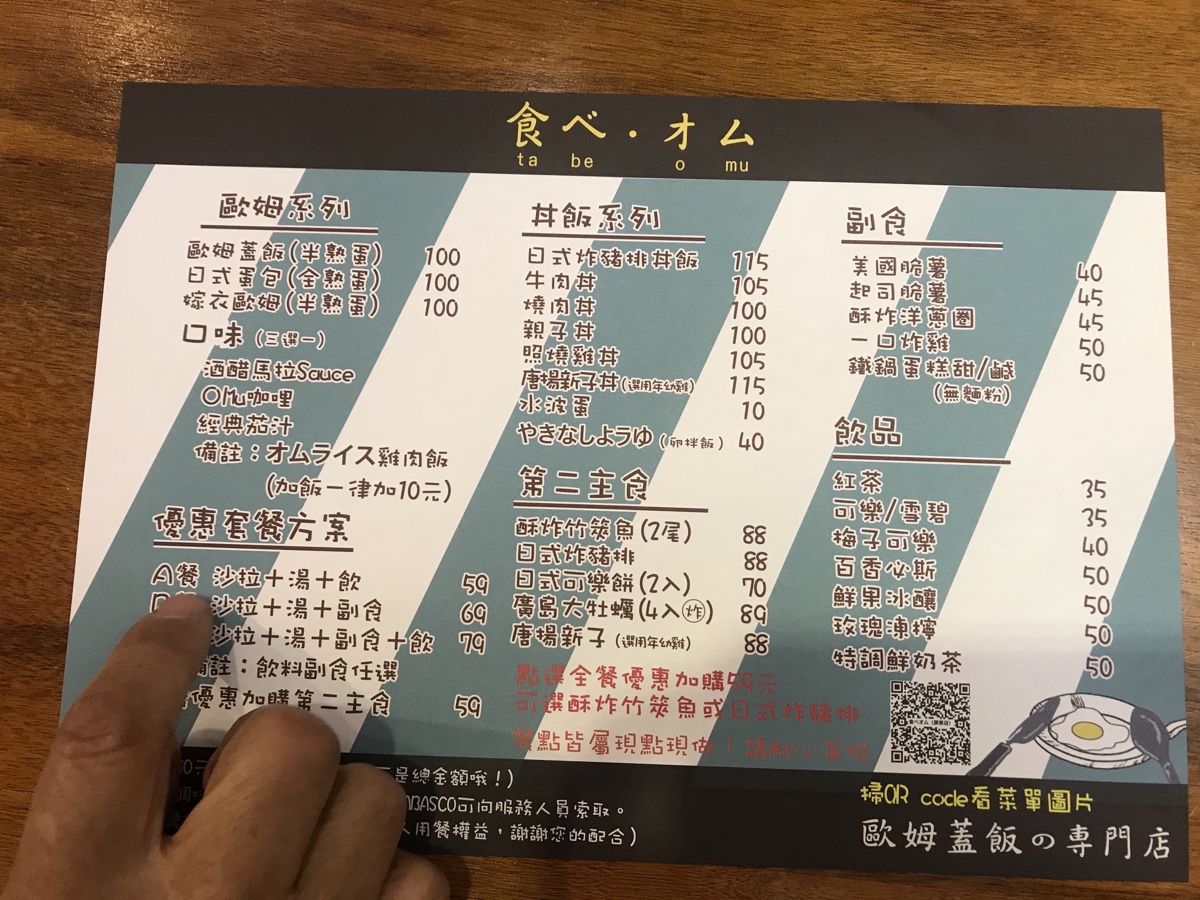 食べ・オム
ta be o mu
歐姆系列
歐姆蓋飯(半熟蛋) 100
日式蛋包(全熟蛋) 100
嫁衣歐姆(半熟蛋) 100
口味(三選一)
酒醋馬拉Sauce
OMu咖哩
經典茄汁
備註：オムライス雞肉飯
(加飯一律加10元)
優惠套餐方案
A餐 沙拉＋湯＋飲 59
沙拉＋湯＋副食 69
沙拉＋湯＋副食＋飲 79
註：飲料副食任選
優惠加購第二主食 59
丼飯系列
日式炸豬排丼飯 115
牛肉丼 105
燒肉丼 100
親子丼 100
照燒雞丼 105
唐揚新子丼(選用年幼雞) 115
水波蛋 10
やきなしようゆ(卵拌飯) 40
第二主食
酥炸竹筴魚(2尾) 88
日式炸豬排 88
日式可樂餅(2入) 70
廣島大牡蠣(4入炸) 89
唐揚新子(選用年幼雞) 88
點選全餐優惠加購59元
可選酥炸竹筴魚或日式炸豬排
餐點皆屬現點現做！請耐心等候
副食
美國脆薯 40
起司脆薯 45
酥炸洋蔥圈 45
一口炸雞 50
鐵鍋蛋糕甜/鹹 50
(無麵粉)
飲品
紅茶 35
可樂/雪碧 35
梅子可樂 40
百香必斯 50
鮮果冰釀 50
玫瑰凍檸 50
特調鮮奶茶 50
是總金額哦！)
ABASCO可向服務人員索取。
用餐權益，謝謝您的配合)
掃QR code看菜單圖片
歐姆蓋飯の專門店